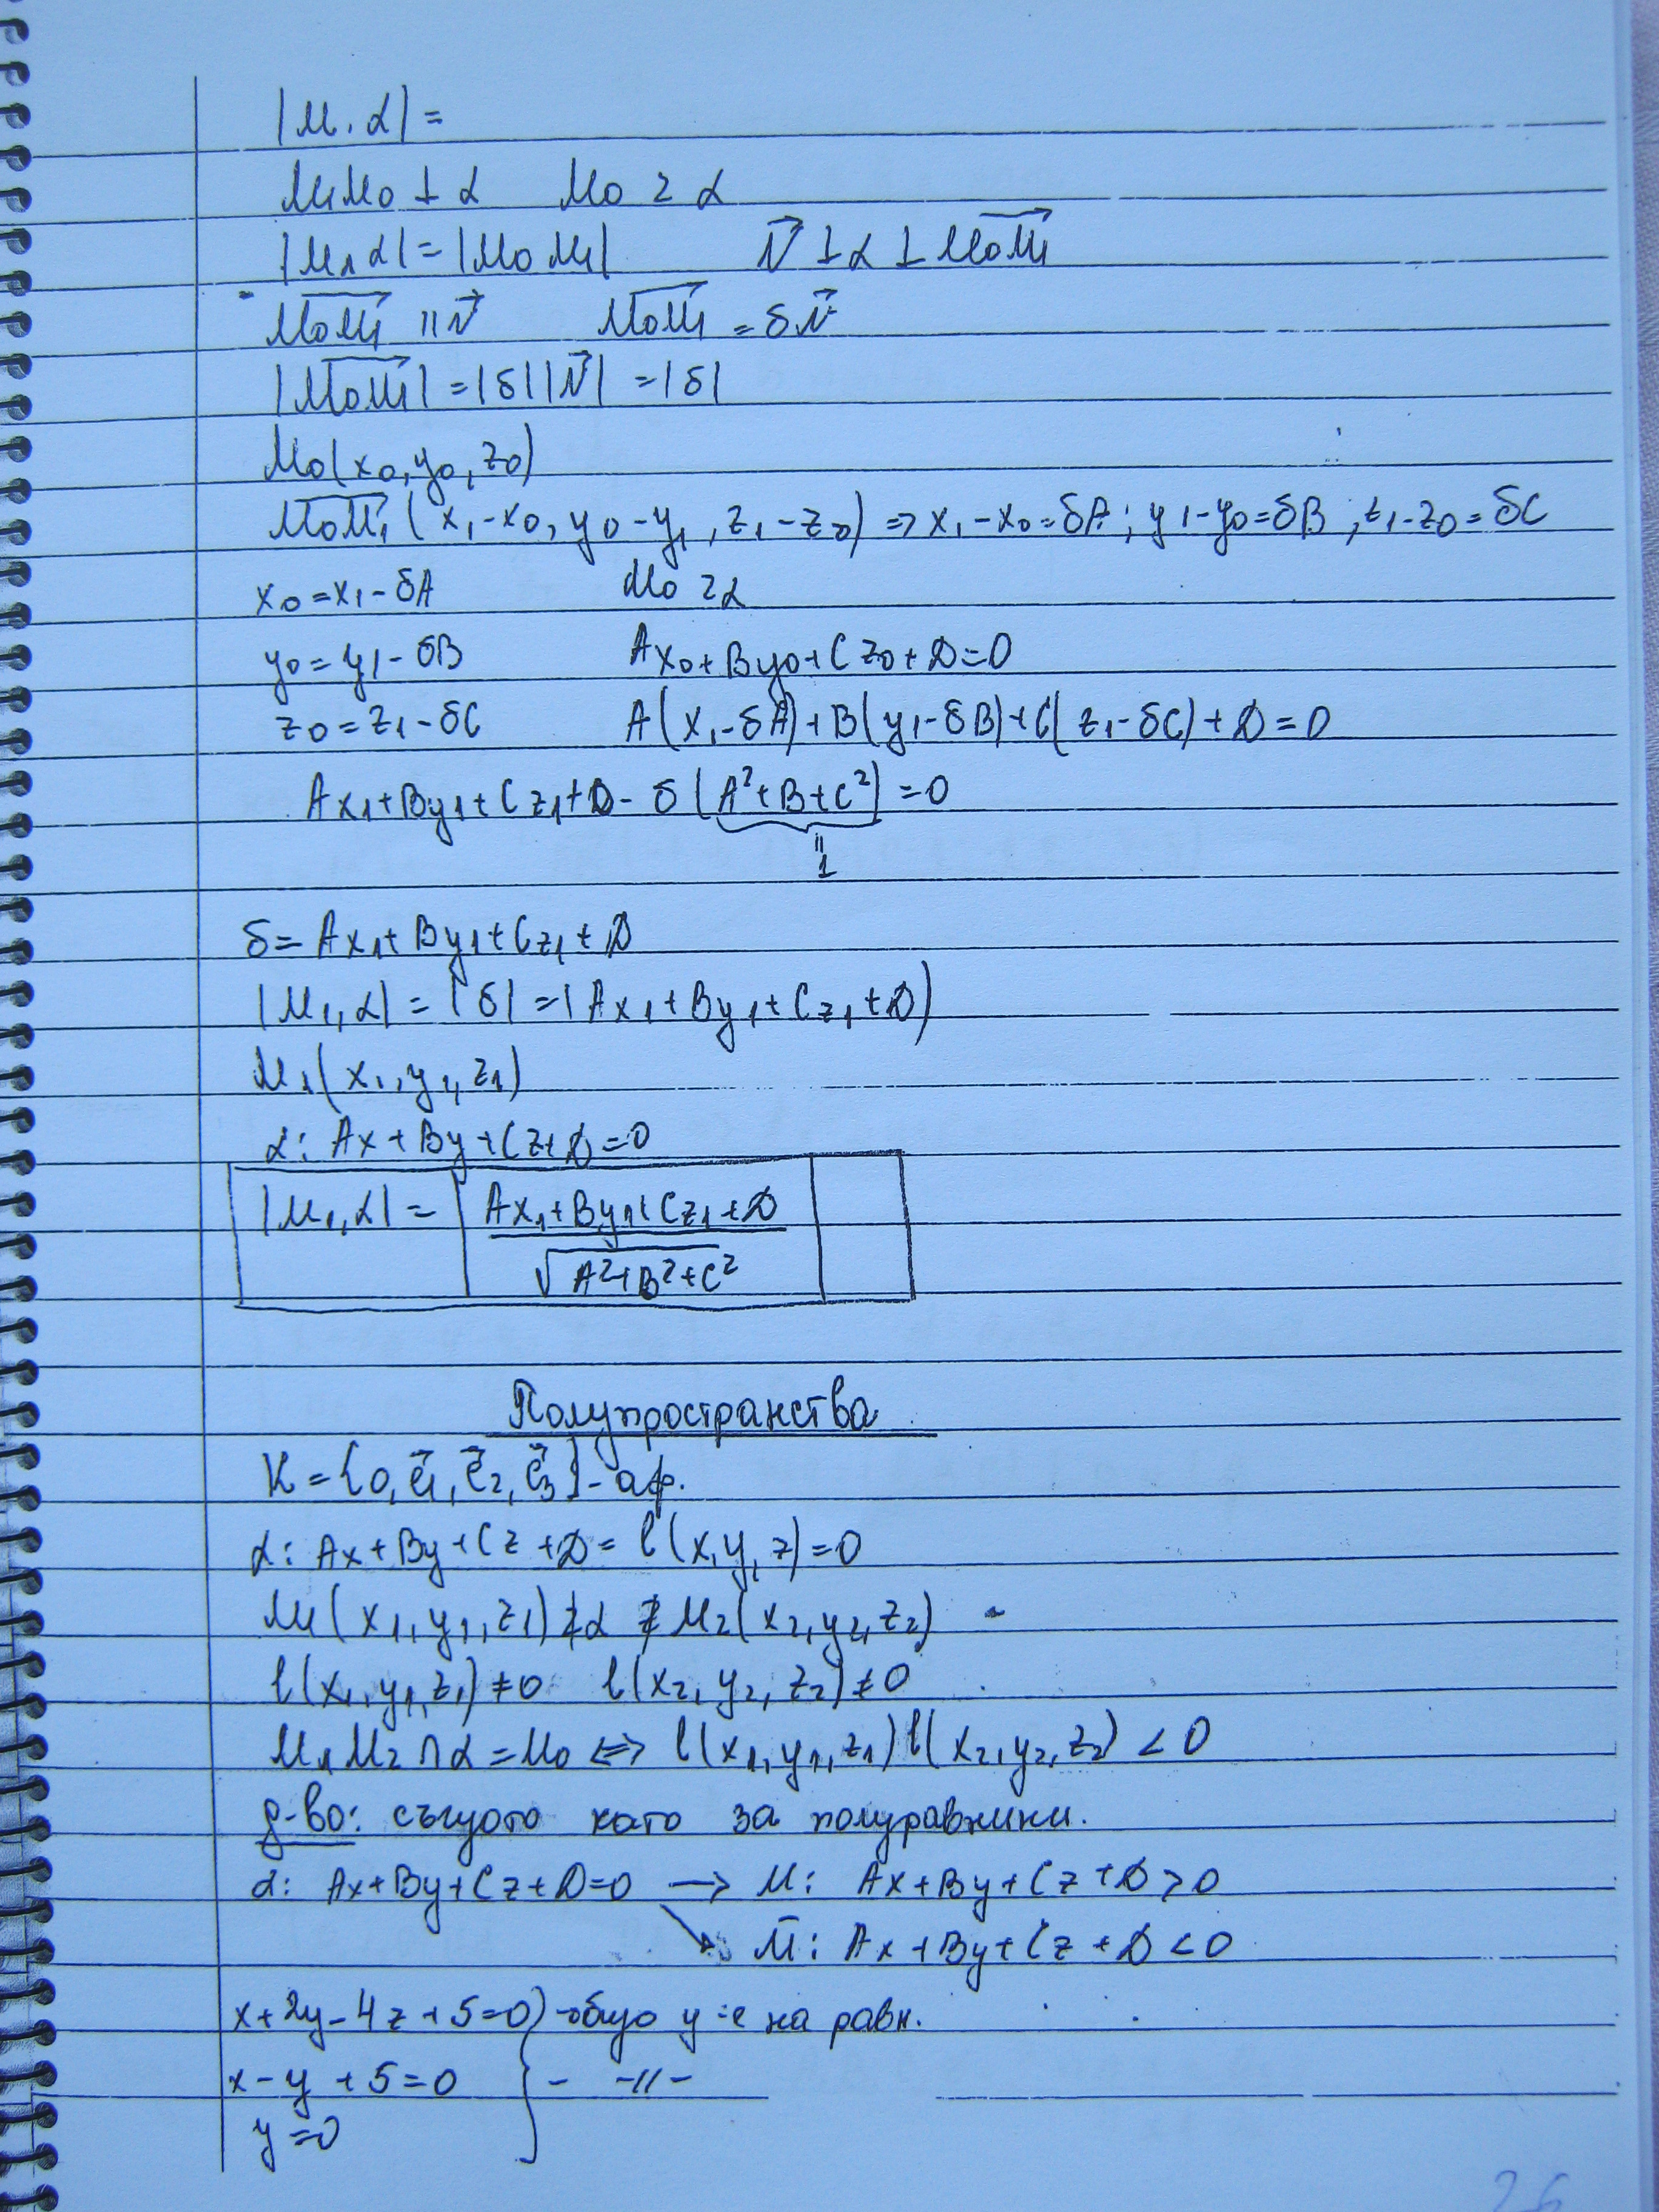 |M₁ α| =
M₁M₀ ⊥ α M₀ z α
|M₁ α| = |M₀ M₁| N⃗ ⊥ α ⊥ M₀M₁→
M₀M₁→ || N⃗ M₀M₁→ = δN⃗
|M₀M₁→| = |δ||N⃗| = |δ|
M₀(x₀, y₀, z₀)
M₀M₁→ (x₁-x₀, y₀-y₁, z₁-z₀) => x₁-x₀=δA; y₁-y₀=δB; z₁-z₀=δC
x₀=x₁-δA M₀ z α
y₀=y₁-δB Ax₀+By₀+Cz₀+D=0
z₀=z₁-δC A(x₁-δA)+B(y₁-δB)+C(z₁-δC)+D=0
Ax₁+By₁+Cz₁+D-δ(A²+B+C²)=0
"
1
δ=Ax₁+By₁+Cz₁+D
|M₁, α| = |δ| = |Ax₁+By₁+Cz₁+D)
M₁(x₁, y₁, z₁)
α: Ax+By+Cz+D=0
|M₁, α| = | Ax₁+By₁+Cz₁+D |
√A²+B²+C²
Полупространства
K={0, e⃗₁, e⃗₂, e⃗₃}-аф.
α: Ax+By+Cz+D=l(x, y, z)=0
M₁(x₁, y₁, z₁) z̸ α z̸ M₂(x₂, y₂, z₂)
l(x₁, y₁, z₁)≠0 l(x₂, y₂, z₂)≠0
M₁M₂∩α=M₀ <=> l(x₁, y₁, z₁)l(x₂, y₂, z₂)<0
д-во: същото като за полуравнини.
α: Ax+By+Cz+D=0 → M: Ax+By+Cz+D>0
↘ M̄: Ax+By+Cz+D<0
x+2y-4z+5=0) -общо у-е на равн.
x-y+5=0 } - -//-
y=0
26